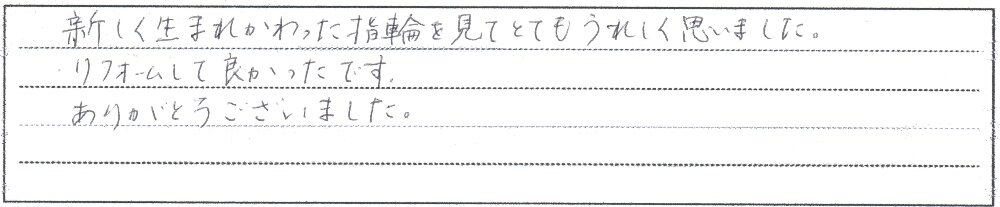 新しく生まれかわった指輪を見てとてもうれしく思いました。
リフォームして良かったです.
ありがとうございました。